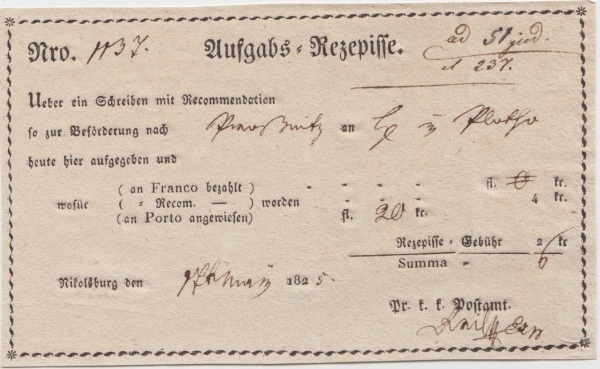 Nro. 1137. Aufgabs-Rezepisse. ad 51 jud.
et 237.
Ueber ein Schreiben mit Recommendation
so zur Beförderung nach Proßnitz an v Plotho
heute hier aufgegeben und
(an Franco bezahlt) - - - - fl. 0 kr.
wofür (= Recom. —) worden - - - - 4 kr.
(an Porto angewiesen) fl. 20 kr.
Rezepisse-Gebühr 2 kr
Summa - 6
Nikolsburg den 1825.
Pr. k. k. Postamt.